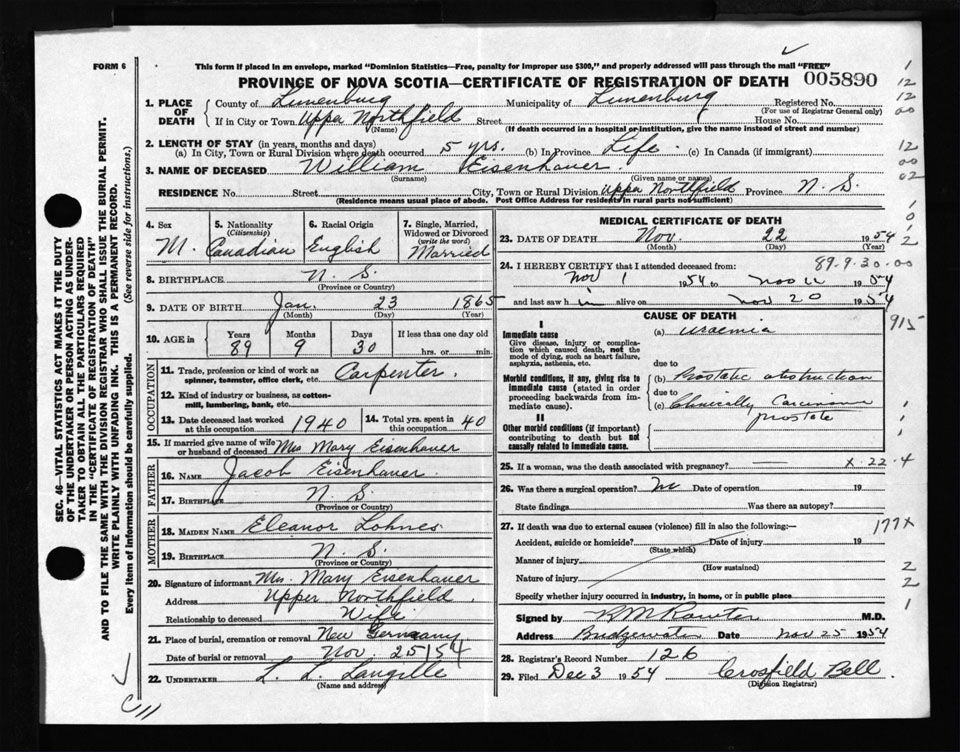 FORM 6
This form if placed in an envelope, marked "Dominion Statistics—Free, penalty for improper use $300," and properly addressed will pass through the mail "FREE"
PROVINCE OF NOVA SCOTIA—CERTIFICATE OF REGISTRATION OF DEATH 005890
1. PLACE OF DEATH County of Lunenburg Municipality of Lunenburg Registered No.
(For use of Registrar General only)
If in City or Town Upper Northfield Street House No.
(Name) (If death occurred in a hospital or institution, give the name instead of street and number)
2. LENGTH OF STAY (in years, months and days)
(a) In City, Town or Rural Division where death occurred 5 yrs. (b) In Province Life. (c) In Canada (if immigrant)
3. NAME OF DECEASED William Eisenhauer.
(Surname) (Given name or names)
RESIDENCE No. Street City, Town or Rural Division Uppa Northfield Province N. S.
(Residence means usual place of abode. Post Office Address for residents in rural parts not sufficient)
SEC. 46—VITAL STATISTICS ACT MAKES IT THE DUTY
OF THE UNDERTAKER OR PERSON ACTING AS UNDER-
TAKER TO OBTAIN ALL THE PARTICULARS REQUIRED
IN THE "CERTIFICATE OF REGISTRATION OF DEATH"
AND TO FILE THE SAME WITH THE DIVISION REGISTRAR WHO SHALL ISSUE THE BURIAL PERMIT.
WRITE PLAINLY WITH UNFADING INK. THIS IS A PERMANENT RECORD.
Every item of information should be carefully supplied. (See reverse side for instructions.)
4. Sex M.
5. Nationality (Citizenship) Canadian
6. Racial Origin English
7. Single, Married, Widowed or Divorced (write the word) Married
8. BIRTHPLACE N. S.
(Province or Country)
9. DATE OF BIRTH Jan. 23 1865
(Month) (Day) (Year)
10. AGE in Years 89 Months 9 Days 30 If less than one day old hrs. or min.
OCCUPATION
11. Trade, profession or kind of work as spinner, teamster, office clerk, etc. Carpenter.
12. Kind of industry or business, as cotton-mill, lumbering, bank, etc.
13. Date deceased last worked at this occupation 1940 14. Total yrs. spent in this occupation 40
15. If married give name of wife or husband of deceased Mrs Mary Eisenhauer
FATHER
16. NAME Jacob Eisenhauer.
17. BIRTHPLACE N. S.
(Province or Country)
MOTHER
18. MAIDEN NAME Eleanor Lohnes
19. BIRTHPLACE N. S.
(Province or Country)
20. Signature of informant Mrs. Mary Eisenhauer
Address Upper Northfield.
Relationship to deceased Wife
21. Place of burial, cremation or removal New Germany
Date of burial or removal Nov. 25/54
22. UNDERTAKER L. L. Langille
(Name and address)
MEDICAL CERTIFICATE OF DEATH
23. DATE OF DEATH Nov. 22 1954
(Month) (Day) (Year)
24. I HEREBY CERTIFY that I attended deceased from: 89.9.30.00
Nov 1 1954 to 1954
and last saw h im alive on Nov 20 1954
CAUSE OF DEATH
I
Immediate cause
Give disease, injury or complication which caused death, not the mode of dying, such as heart failure, asphyxia, asthenia, etc.
(a) uraemia
due to
Morbid conditions, if any, giving rise to immediate cause (stated in order proceeding backwards from immediate cause).
(b) Prostatic obstruction
due to
(c) Clinically Carcinoma prostate
II
Other morbid conditions (if important) contributing to death but not causally related to immediate cause.
25. If a woman, was the death associated with pregnancy? — X.22.4
26. Was there a surgical operation? No Date of operation 19
State findings Was there an autopsy?
27. If death was due to external causes (violence) fill in also the following:—
Accident, suicide or homicide? Date of injury 19
(State which)
Manner of injury
(How sustained)
Nature of injury
Specify whether injury occurred in industry, in home, or in public place
Signed by M.D.
Address Bridgewater Date Nov 25 1954
28. Registrar's Record Number 126
29. Filed Dec 3 1954 Crosfield Bell
(Division Registrar)
1
12
12
00
12
00
02
1
0
1
2
915
1
1
1
177X
2
2
1